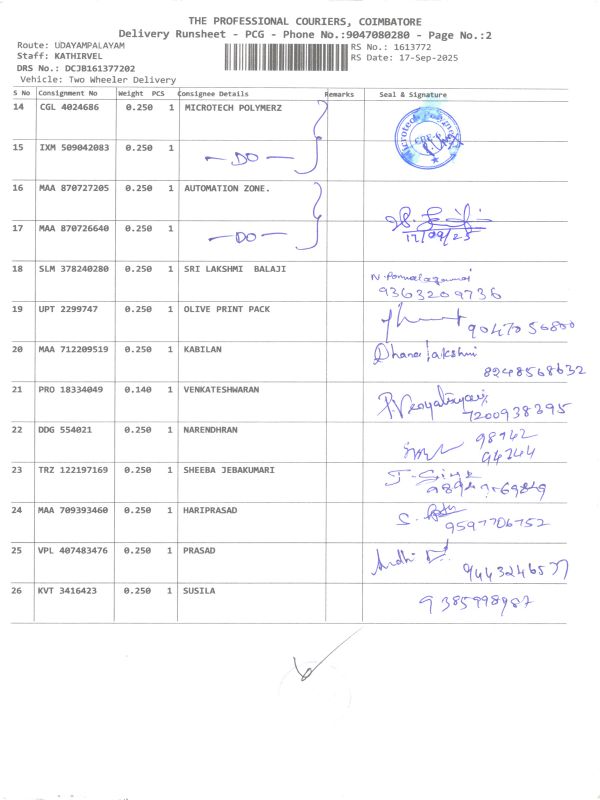 THE PROFESSIONAL COURIERS, COIMBATORE
Delivery Runsheet - PCG - Phone No.:9047080280 - Page No.:2
Route: UDAYAMPALAYAM
Staff: KATHIRVEL
DRS No.: DCJB161377202
Vehicle: Two Wheeler Delivery
RS No.: 1613772
RS Date: 17-Sep-2025
S No Consignment No Weight PCS Consignee Details Remarks Seal & Signature
14 CGL 4024686 0.250 1 MICROTECH POLYMERZ
15 IXM 509042083 0.250 1 — DO —
16 MAA 870727205 0.250 1 AUTOMATION ZONE.
17 MAA 870726640 0.250 1 — DO — 17/09/25
18 SLM 378240280 0.250 1 SRI LAKSHMI BALAJI
9363209736
19 UPT 2299747 0.250 1 OLIVE PRINT PACK
20 MAA 712209519 0.250 1 KABILAN Dhana lakshmi
8248568632
21 PRO 18334049 0.140 1 VENKATESHWARAN
7200938395
22 DDG 554021 0.250 1 NARENDHRAN
23 TRZ 122197169 0.250 1 SHEEBA JEBAKUMARI
24 MAA 709393460 0.250 1 HARIPRASAD
9597706752
25 VPL 407483476 0.250 1 PRASAD
26 KVT 3416423 0.250 1 SUSILA 9385998987